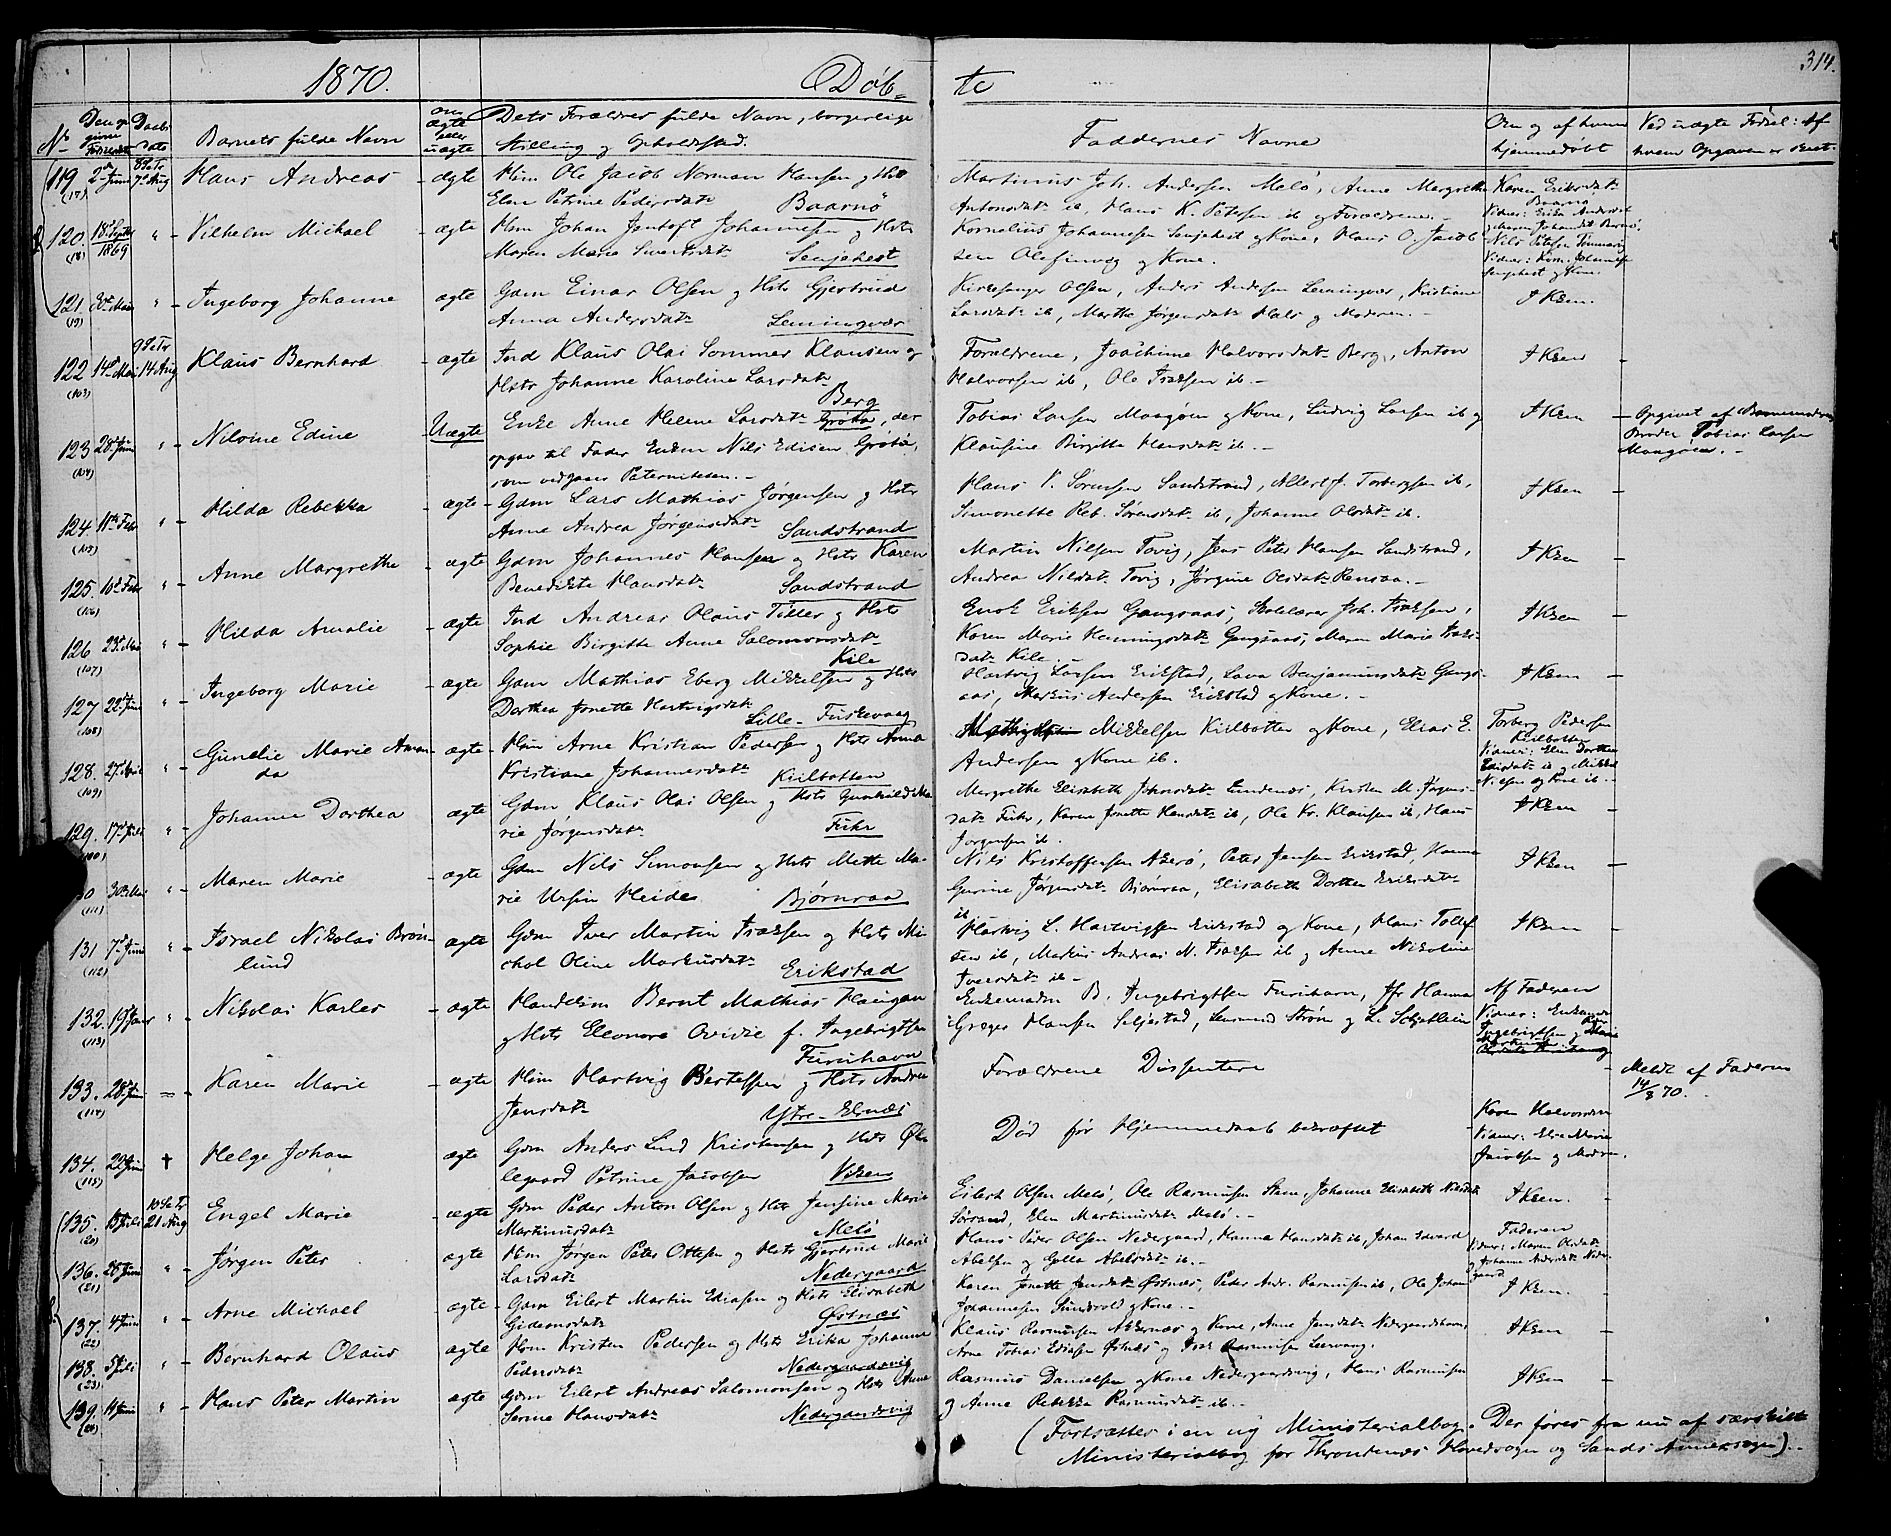 314.
1870. Døb= te
No Barnets fulde Navn om ægte eller uægte Dets Forældres fulde Navn, borgerlige Stilling og Opholdssted. Faddernes Navne Om og af hvem hjemmedøbt Ved uægte Fødsel: Af hvem Opgaven er
119 2d Juni 7d Aug Hans Andreas - ægte Ole Jacob Norman Hansen og Hstr
(17) Elen Petrine Pedersdatr Baarnø
Martinus Joh. Andersen Melø, Anne Margrethe
Antonsdatr ib, Hans K. Petersen ib og Forældrene.
Karen Eriksdatr
120. 18d Septbr 1869 " - Vilhelm Michael - ægte Johan Jentoft Johannesen og Hstr
(18) Maren Marie Sivertsdatr Senjehest
Kornelius Johannesen Senjehest og Kone, Hans O. Jacobsen
Olafinvg og Kone.
121. " - Ingeborg Johanne ægte Gdm Einar Olsen og Hstr Gjertrud
(19) Anna Andersdatr Lemingvær
Kirkesanger Olsen, Anders Andersen Lemingvær, Kristiane
Larsdatr ib, Marthe Jørgensdatr Hals og Moderen. -
I Kken.
122 14d Mai 14 Aug Klaus Bernhard - ægte Ind Klaus Olai Sommer Klausen og
(103) Hstr Johanne Karoline Larsdatr
Berg
Forældrene, Joachime Halvorsdatr Berg, Anton
Halvorsen ib, Ole Isaksen ib. -
I Kken
123 28 Juni " - Nilsine Edine - Uægte Enke Anne Helene Larsdatr Grøtø, der
(104) opgav til Fader Enkem Nils Edisen Grøtø,
som vedgaaer Paterniteten. -
Tobias Larsen Maagøen og Kone, Ludvig Larsen ib og
Klausine Birgitte Hansdatr ib. -
I Kken - Opgivet af Barnemoderens
Broder Tobias Larsen
Maagøen. -
124. 11te Febr " - Hilda Rebekka - ægte - Gdm Lars Mathias Jørgensen og Hstr
(105) Anne Andrea Jørgensdatr Sandstrand
Hans P. Sørensen Sandstrand, Albert f. Torbergsen ib,
Simonette Reb. Sørensdatr ib, Johanne Olsdatr ib.
I Kken -
125. 10d Febr " - Anne Margrethe - ægte Gdm Johannes Hansen og Hstr Karen
(106) Benedikte Hansdatr Sandstrand
Martin Nilsen Tovig, Jens Peter Hansen Sandstrand,
Andrea Nilsdatr Tovig, Jørgine Olsdatr Rensaa. -
I Kken -
126 23d Mai " - Hilda Amalie - ægte Ind Andreas Olaus Tiller og Hstr
(107) Sophie Birgitte Anne Salomonsdatr
Kile
Enok Eriksen Gangsaas, Skolelærer Joh. Isaksen,
Karen Marie Henningsdatr Gangsaas, Maren Marie Isaksdatr
Kile -
I Kken -
127 22d Juni " - Ingeborg Marie - ægte Gdm Mathias Eberg Mikkelsen og Hstr
(108) Dorthea Jonette Hartvigsdatr
Lille-Fuskevaag
Hartvig Larsen Erikstad, Lava Benjaminsdatr Gangsaas,
Markus Andersen Erikstad og Kone. -
I Kken -
128. 27d April " - Gunelie Marie Amanda - ægte - Arne Kristian Pedersen og Hstr Anna
(109) Kristiane Johannesdatr Kiilbotten
Mikkelsen Kiilbotten og Kone, Elias E.
Andersen og Kone ib.
Torberg Pedersen
Kiilbotten
Vidner: Elen Dorthea
129. 17d Juli " - Johanne Dorthea ægte Gdm Klaus Olai Olsen og Hstr Gunhild Marie
Jørgensdatr Fuhr
Margrethe Elisabeth Johnsdatr Lundenes,
Fuhr, Karen Jonette Hansdatr ib, Ole Kr. Klausen ib, Hans
Jørgensen ib.
I Kken -
30te Mai " - Maren Marie - ægte Gdm Nils Simonsen og Hstr Mette Marie
(111) Ursin Heide Bjørnraa
Nils Kristoffersen Akerø, Peter Jensen Erikstad, Hanna
Gurine Jørgensdatr Bjørnraa, Elisabeth Dorthea Eriksdatr
ib
I Kken -
131 7d Juni " - Israel Nikolai Brønlund - ægte Gdm Iver Martin Isaksen og Hstr Michol
(112) Oline Markusdatr Erikstad
Hartvig L. Hartvigsen Erikstad og Kone, Hans Tollefsen
ib, Markus Andreas M. Isaksen ib og Anne Nikoline
Iversdatr ib -
I Kken -
132. 19d Janr " - Nikolai Karles - ægte Handelsm Bernt Mathias Haugan
(113) og Hstr Eleonore Ovidie f. Ingebrigtsen
Furuhavn
Enkemadm B. Ingebrigtsen Furuhavn, Jfr Hanna
Hansen Seljestad, Strøm og L. Schjetlein
Af Faderen
133. 28d Juni = - Karen Marie - ægte Hartvig Bertelsen og Hstr Andrea
(114) Jensdatr Ytre-Elgnæs
Forældrene Dissentere
- Meldt af Faderen
14/8 70.
134. 29 Juni † Helge Johan ægte Gdm Anders Lind Kristensen og Hstr Ollegaard
(115) Petrine Jacobsen Viken
Død før Hjemmedaab bekræftet
Karen Halvorsdatr
Vidner: Else Marie
Jacobsen og Moderen.
135. Juli 21 Aug Engel Marie - ægte Gdm Peder Anton Olsen og Hstr Jensine Marie
(20) Martinusdatr Melø
Eilert Olsen Melø, Ole Rasmussen, Johanne Elisabeth Nilsdatr
Sørsand, Elen Martinusdatr Melø. -
I Kken. -
136. 25 Juni " - Jørgen Peter ægte Jørgen Peter Ottesen og Hstr Gjertrud Marie
(21) Larsdatr Nedergaard
Hans Peder Olsen Nedergaard, Hanna Hansdatr ib, Johan Edvard
Abelsen og Golla Abelsdatr ib. -
Faderen
Vidner: Maren Olsdatr
og Johanne Andersdatr Nedergaard
137. 4 Juni " - Arne Michael ægte - Gdm Eilert Martin Ediasen og Hstr Elisabeth
(22) Gideonsdatr Østnæs
Karen Jonette Jensdatr Østnæs, Peder Andr. Rasmussen ib, Ole Johan
Johannesen Sundsvold og Kone. -
I Kken. -
138. 5 Juli " - Bernhard Olaus - ægte Kristen Pedersen og Hstr Erika Johanne
(23) Pedersdatr Nedergaardsvig
Klaus Rasmussen Akernæs og Kone, Anne Jensdatr Nedergaardshavn,
Arne Tobias Ediasen Østnæs og Isak Rasmussen Leervaag.
I Kken -
139. 11 Juni " - Hans Peter Martin ægte Gdm Eilert Andreas Salomonsen og Hstr Anne
Serine Hansdatr Nedergaardsvig
Rasmus Danielsen og Kone Nedergaardsvig, Hans Rasmussen
og Anne Rebekka Rasmusdatr ib. -
I Kken -
(Fortsættes i en ny Ministerialbog. Der føres fra nu af særskilt
Ministerialbog for Throndenæs Hovedsogn og Sands Annexsogn). -